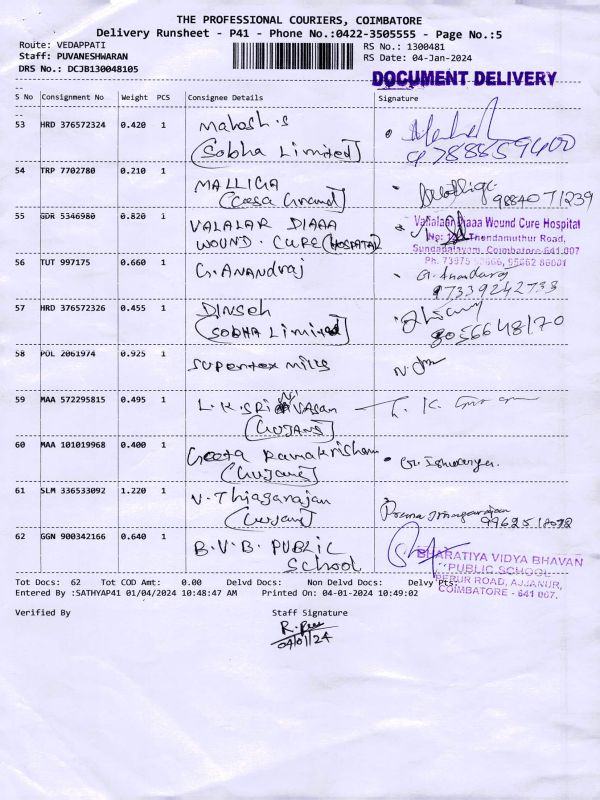 THE PROFESSIONAL COURIERS, COIMBATORE
Delivery Runsheet - P41 - Phone No.:0422-3505555 - Page No.:5
Route: VEDAPPATI
RS No.: 1300481
Staff: PUVANESHWARAN
RS Date: 04-Jan-2024
DRS No.: DCJB130048105
DOCUMENT DELIVERY
S No Consignment No Weight PCS Consignee Details Signature
53 HRD 376572324 0.420 1 Mahesh.S
(Sobha Limited)
9788659400
54 TRP 7702780 0.210 1 MALLIGA
(Casa Grand)
9884071239
55 GDR 5346980 0.820 1 VALALAR DIAAA
WOUND. CURE (HOSPITAL)
Vallalar Diaaa Wound Cure Hospital
Thondamuthur Road,
Sungapalayam, Coimbatore-641 007
56 TUT 997175 0.660 1 G. ANANDraj
G. Anandaraj
97339242733
57 HRD 376572326 0.455 1 DINSEh
(SOBHA Limited)
8056648170
58 POL 2061974 0.925 1 SUPERTEX MILLS
59 MAA 572295815 0.495 1 L.K.SRINIVASAN
60 MAA 101019968 0.400 1 Geeta Ramakrishnan
61 SLM 336533092 1.220 1 V. Thiagarajan
62 GGN 900342166 0.640 1 B.V.B. PUBLIC
School
BHARATIYA VIDYA BHAVAN
PUBLIC SCHOOL
PERUR ROAD, AJJANUR,
COIMBATORE - 641 007.
Tot Docs: 62 Tot COD Amt: 0.00 Delvd Docs: Non Delvd Docs: Delvy Pts:
Entered By :SATHYAP41 01/04/2024 10:48:47 AM Printed On: 04-01-2024 10:49:02
Verified By Staff Signature
04/01/24